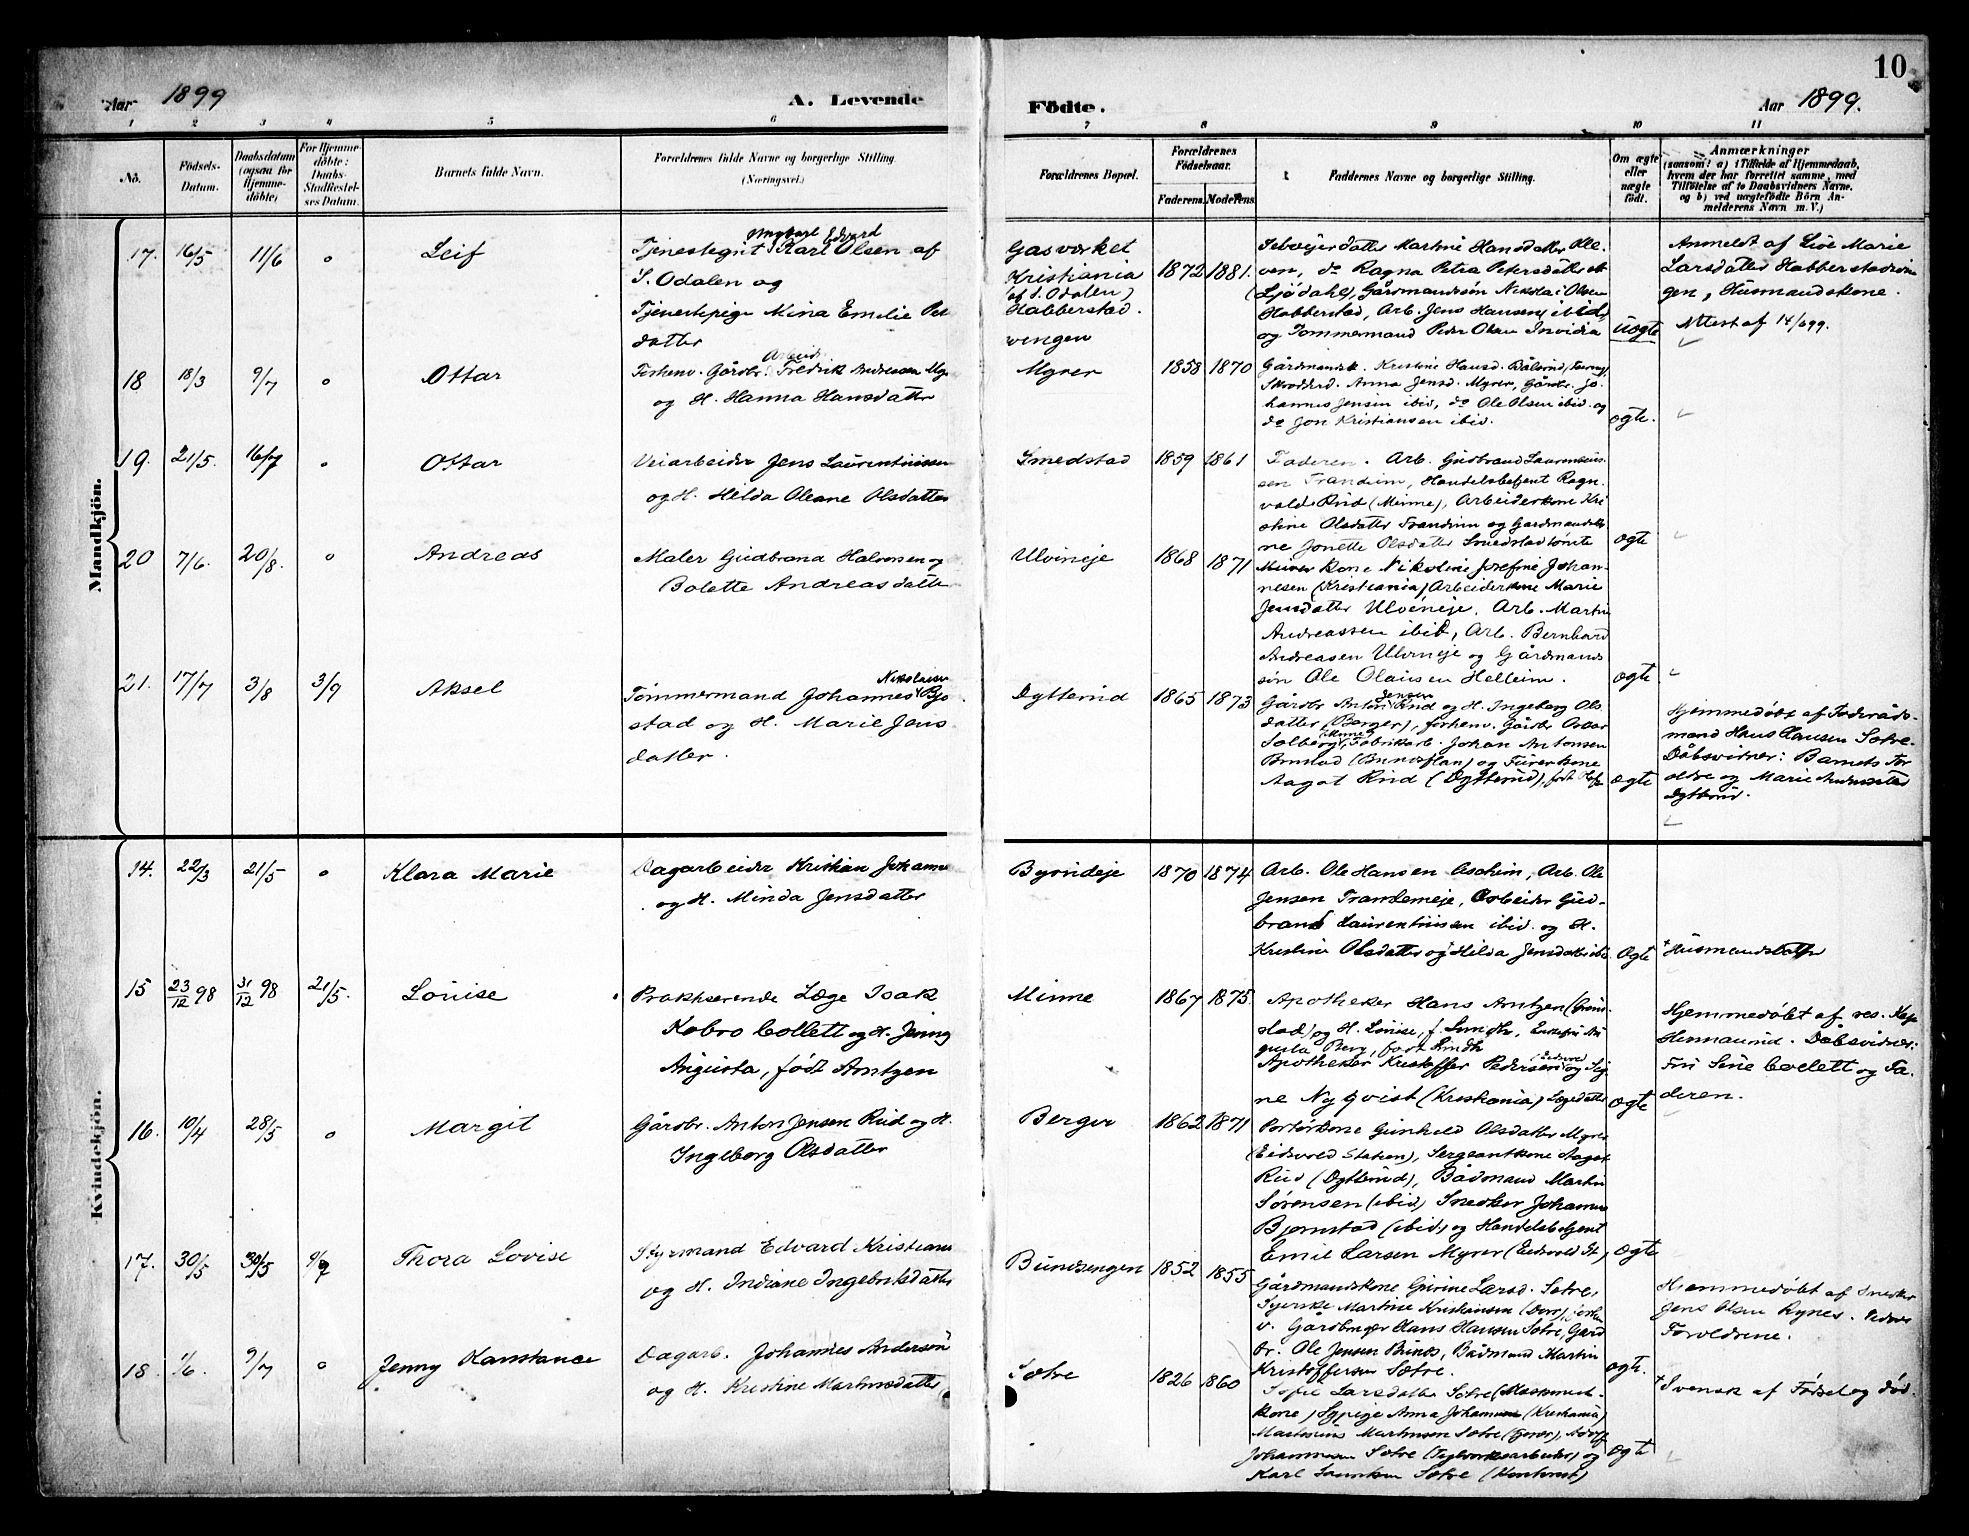 10
Aar 1899 A. Levende Födte. Aar 1899.
1 2 3 4 5 6 7 8 9 10 11
No.
Födsels-
Datum.
Daabsdatum
(ogsaa for
Hjemme-
döbte)
For Hjemme-
döbte:
Daabs-
Stadfæstel-
ses Datum.
Barnets fulde Navn.
Forældrenes fulde Navne og borgerlige Stilling.
(Næringsvei.)
Forældrenes Bopæl.
Forældrenes
Födselsaar.
Faderens. Moderens.
Faddernes Navne og borgerlige Stilling.
Om ægte
eller
uægte
födt.
Anmærkninger
(saasom: a) i Tilfælde af Hjemmedaab,
hvem der har forrettet samme, med
Tilföielse af to Daabsvidners Navne.
og b) ved uægtefödte Börn An-
melderens Navn m. V.)
Mandkjön.
17. 16/5 11/6 0 Leif
Edvard
Tjenestegut Karl Olsen af
S. Odalen og
Tjenestepige Mina Emilie Pet
datter
Gasværket
Kristiania
(af S. Odalen)
Habberstad.
vingen
1872 1881.
datter Martine Hansdatter Ole-
ven, do Ragna Petra Petersdatter
(Ljödahl), Gårdmandssön Nikolai Olsen
Habberstad, Arb. Jens Hansen ibid,
og Tommermand Peder Olsen
uægte
Anmeldt af Lise Marie
Larsdatter Habberstadvin
gen, Husmandskone.
Attest af 14/6 99.
18 18/3 9/7 0 Ottar
Arbeid.
Forhenv. Gårdbr. Fredrik Andreassen
og H. Hanna Hansdatter
Myrer
1858 1870
Gårdmandsk. Kristine Hansd.
Anna Jensd. Myrer, Gårdbr. Jo-
hannes Jensen ibid, do Ole Olsen ibid. og
do Jon Kristiansen ibid.
ægte.
19. 21/5. 16/7 0 Ottar
Veiarbeider Jens Laurentiussen
og H. Hilda Oleane Olsdatter
Smedstad
1859 1861
Faderen. Arb. Gudbrand Laurentius-
sen Trandum, Handelsbetjent Ragn-
vald Rud (Minne), Arbeiderkone Kri
stine Olsdatter Trandum og Gårdmandsko-
ne Jonette Olsdatter Smedstad
ægte
20 7/6. 20/8. 0 Andreas
Maler Gudbrand Halvorsen og
Bolette Andreasdatter
Ulvineje
1868 1871
kone Nikoline Josefine Johan-
nesen (Kristiania) Arbeiderkone Marie
Jensdatter Ulvineje. Arb. Martin
Andreassen ibid, Arb. Bernhard
Andreasen Ulvineje og Gårdmands
sön Ole Olausen Helleim.
ægte
21. 17/7 3/8 3/9 Aksel
Nikolaisen
Tömmermand Johannes Bjo
stad og H. Marie Jens
datter.
Dytterud
1865 1873
Jensen
Gårdbr Anton Rud og H. Ingeborg Ols
datter (Berger), forhenv. Gårdbr Oskar
(Minne)
Solberg, Fabrikarb. Johan Antonsen
og
Aagot Rud (Dytterud),
ægte
Hjemmedöbt af Föderåds-
mand Hans Hansen Sætre.
Dåbsvidner: Barnets For
ældre og Marie
Dytterud.
Kvindekjön.
14. 22/3 21/5 0 Klara Marie
Dagarbeider Kristian Johanne
og H. Minda Jensdatter
1870 1874
Arb. Ole Hansen Askim, Arb. Ole
Jensen Arbeider Gud-
brand Laurentiussen ibid. og H.
Kristine Olsdatter og + Hilda Jensdatter ibid.
Ægte
+ Husmandsdatter
15 23/12 98 31/12 98 21/5. Louise
Praktiserende Læge Isak
Kobro Collett og H. Jenny
Augusta, född Arntzen
Minne
1867 1875.
Apotheker Hans Arntzen (Grim-
stad) og H. Louise, f. Lundh, Enkefru Au
gusta Berg, född Lundh
Apotheker Kristoffer Pedersen og Sig
ne Nyqvist (Kristiania) Lægedatter
ægte
Hjemmedöbt af res. Kap.
Dåbsvidner:
Fru Sine Collett og Fa-
deren.
16. 10/4 28/5 0 Margit
Gårdbr. Anton Jensen Rud og H.
Ingeborg Olsdatter
Berger
1862 1871
Portörkone Gunhild Olsdatter Myrer
(Eidsvold Station), Sergeantkone Aagot
Rud (Dytterud), Bådmand Martin
Sörensen (ibid) Snedker Johannes
Bjørnstad (ibid,) og Handelsbetjent
Emil Larsen Myrer (Eidsvold St.)
ægte
17. 30/5 30/5 9/7 Thora Lovise
Styrmand Edvard Kristians
og H. Indiane Ingebretsdatter
Bundsengen
1852 1855
Gårdmandskone Gurine Larsd. Sætre,
Syerske Martine Kristiansen
Gårdbruger Hans Hansen Sætre, Gård
br. Ole Jensen Bådmand Martin
Kristoffersen Sætre.
ægte.
Hjemmedöbt af Snedker
Jens Olsen Rynes.
Forældrene.
18. 1/6. 9/7 0 Jenny Konstance
Dagarb. Johannes Anderson+
og H. Kristine Martinsdatter
Sætre
1826 1860
Sofie Larsdatter Sætre (Maskinist-
kone) Sypige Anna Johannsen (Kristiania)
Martinius Martinsen Sætre
Johannesen Sætre (Teglværksarbeider) og
Karl Sætre
ægte
+ Svensk af Födsel og död